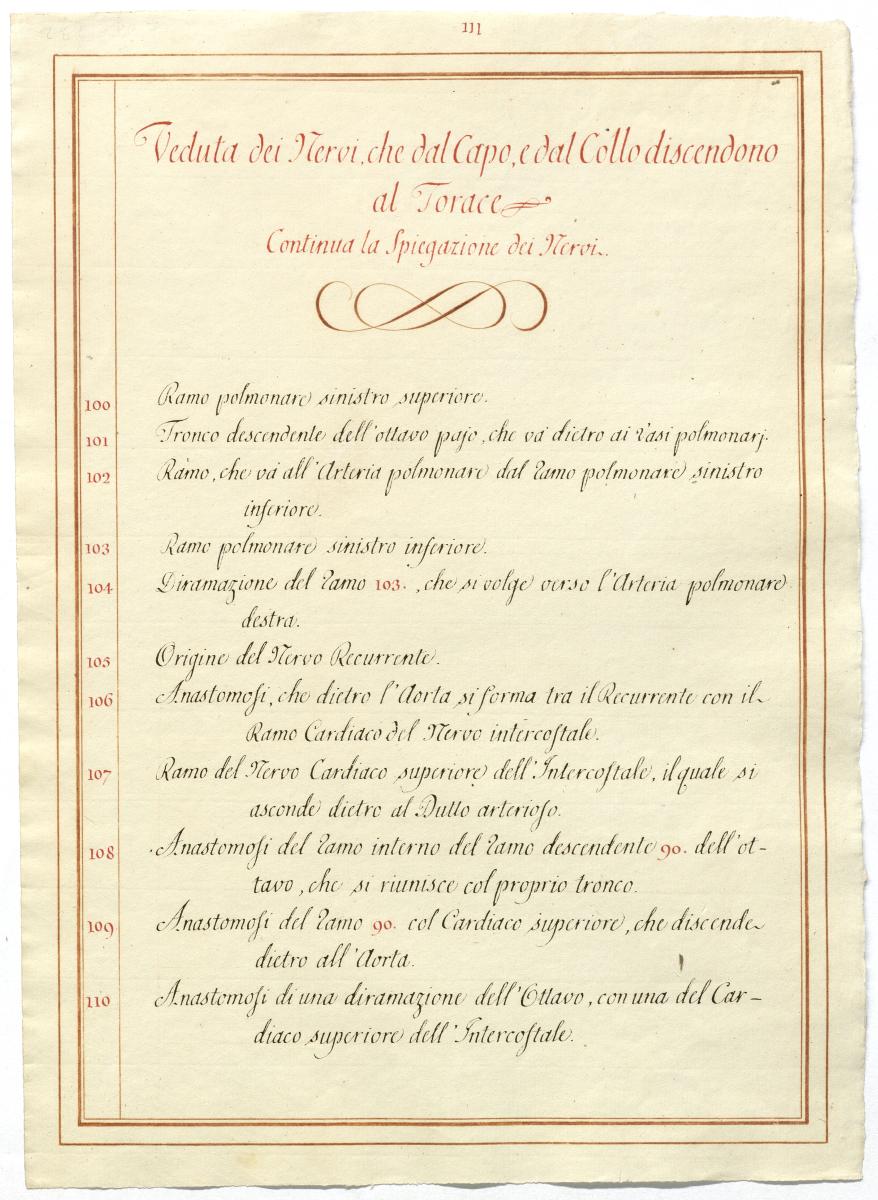 111
Veduta dei Nervi, che dal Capo, e dal Collo discendono
al Torace
Continua la Spiegazione dei Nervi.
100 Ramo polmonare sinistro superiore.
101 Tronco descendente dell'ottavo pajo, che và dietro ai Vasi polmonarj.
102 Ramo, che và all'Arteria polmonare dal Ramo polmonare sinistro
inferiore.
103 Ramo polmonare sinistro inferiore.
104 Diramazione del Ramo 103., che si volge verso l'Arteria polmonare
destra.
105 Origine del Nervo Recurrente.
106 Anastomosi, che dietro l'Aorta si forma tra il Recurrente con il
Ramo Cardiaco del Nervo intercostale.
107 Ramo del Nervo Cardiaco superiore dell'Intercostale, il quale si
asconde dietro al Dutto arterioso.
108 Anastomosi del Ramo interno del Ramo descendente 90. dell'ot-
tavo, che si riunisce col proprio tronco.
109 Anastomosi del Ramo 90. col Cardiaco superiore, che discende
dietro all'Aorta.
110 Anastomosi di una diramazione dell'Ottavo, con una del Car-
diaco superiore dell'Intercostale.